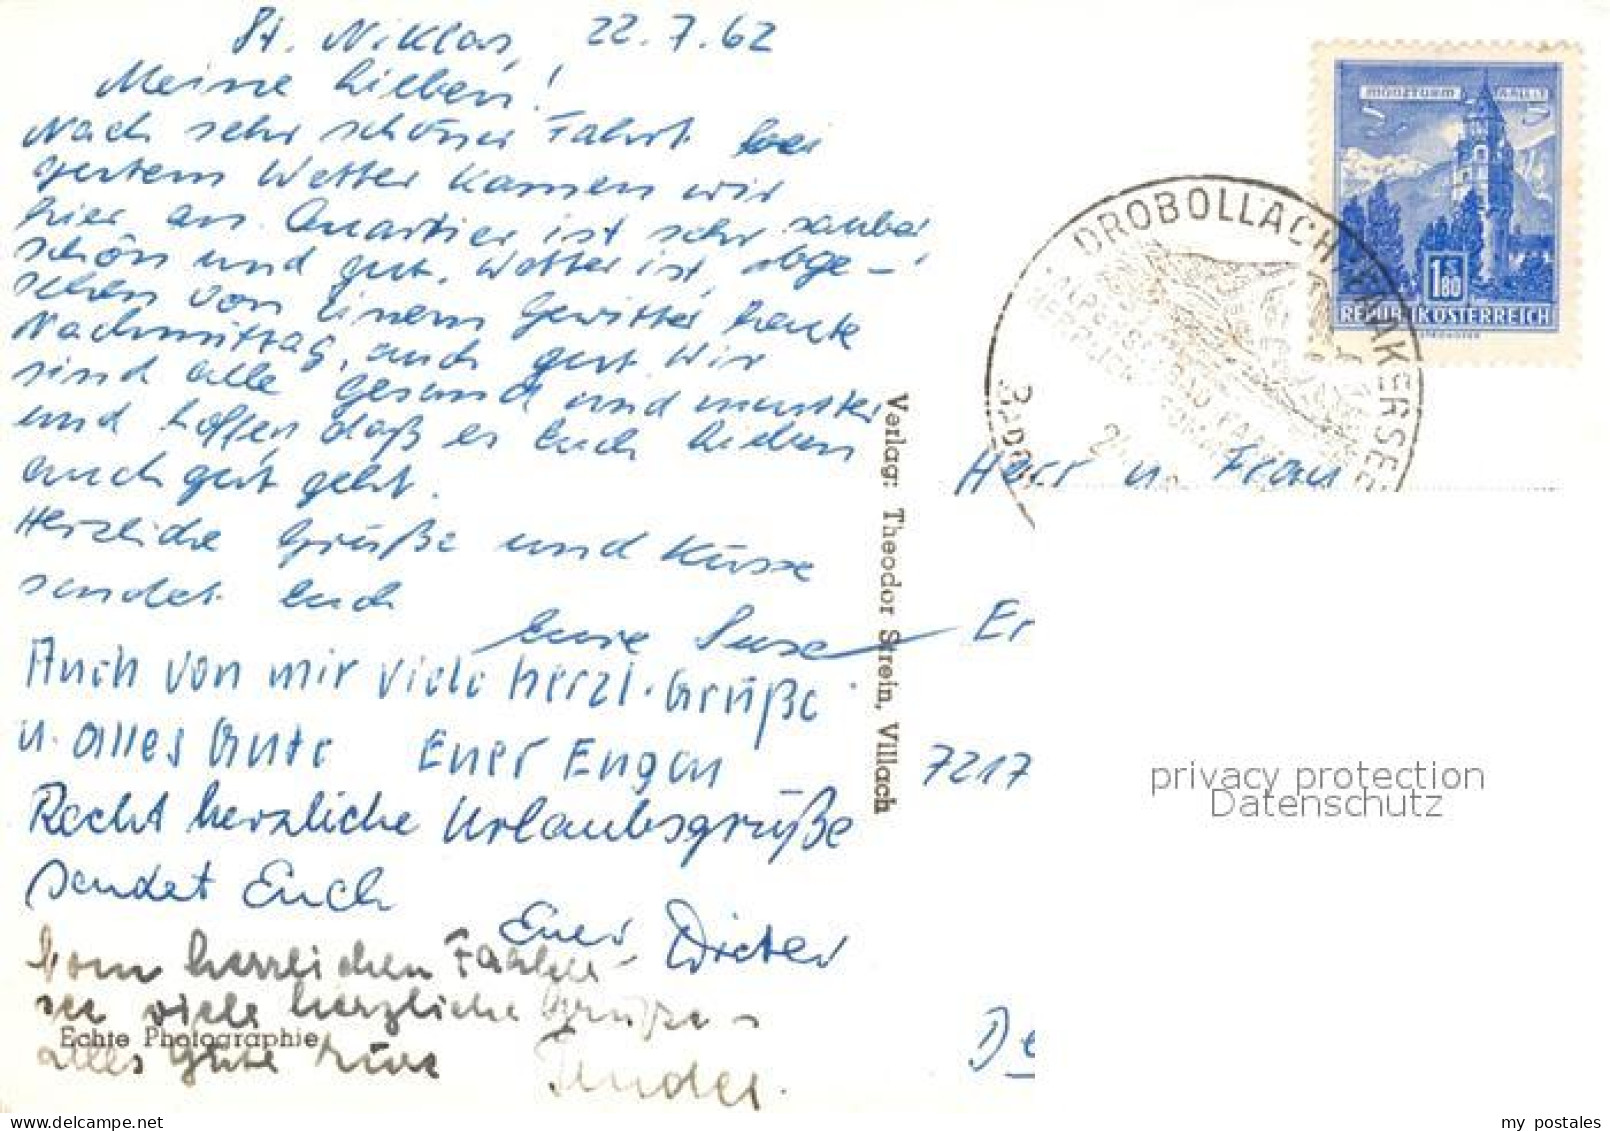 St. Niklas, 22.7.62
Meine Lieben!
Nach sehr schöner Fahrt bei
gutem Wetter kamen wir
hier an. Quartier ist sehr sauber
schön und gut. Wetter ist, abge-
sehen von einem Gewitter heute
Nachmittag, auch gut. Wir
sind alle gesund und munter
und hoffen, daß es Euch Lieben
auch gut geht.
Herzliche Grüße und Küsse
sendet Euch
Eure Suse
Auch von mir viele herzl. Grüße
u. alles Gute Euer Eugen
Recht herzliche Urlaubsgrüße
sendet Euch
Euer Dieter
Vom herrlichen Faaker-
see viele herzliche Grüße
alles Gute
Echte Photographie
Verlag: Theodor Strein, Villach
MÜNZTURM HALL I.T.
1.80
REPUBLIK ÖSTERREICH
DROBOLLACH FAAKERSEE
Herr u. Frau
Er
7217
De
privacy protection
Datenschutz
my postales